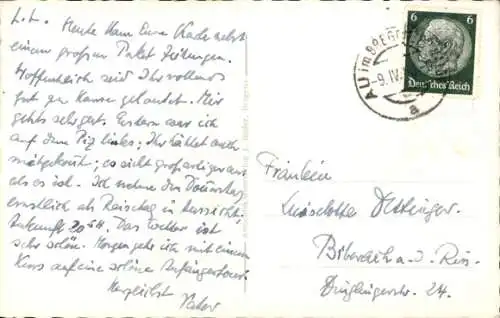 L. L. Heute kam Eure Karte nebst
einem großen Paket Zeitungen.
Hoffentlich seid Ihr vollends
gut zu Hause gelandet. Mir
gehts sehr gut. Gestern war ich
auf dem Piz; Ihr hättet auch
mitgekonnt; es sieht großartiger aus
als es ist. Ich nehme den Donnerstag
ernstlich als Reisetag in Aussicht;
Ankunft 20 54. Das Wetter ist
sehr schön. Morgen gehe ich mit einem
Kurs auf eine schöne Anfängertour.
Herzlichst
Vater
6 6
Deutsches Reich
AU im BREG
-9. IV.
a
Fräulein
Luiselotte Dettinger
Biberach a. d. Riss
Dinglingerstr. 24.